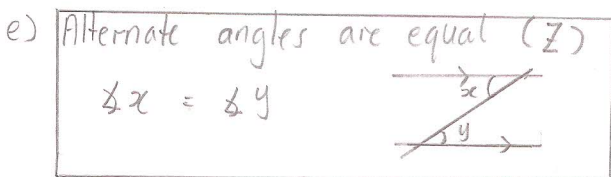 e) Alternate angles are equal (Z)
∡x = ∡y
x
y